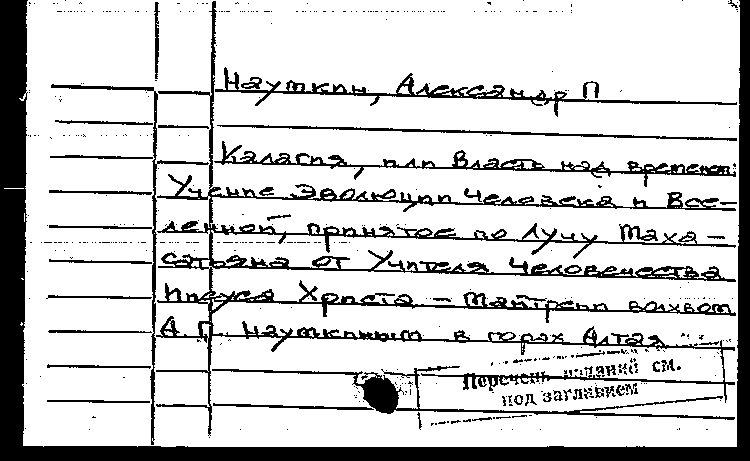 Наумкин, Александр П
Калагия, или Власть над временем:
Учение Эволюции Человека и Все-
ленной, принятое по Лучу Маха-
сатьяна от Учителя Человечества
Иисуса Христа – Майтрейи волхвом
А. П. Наумкиным в горах Алтая
Перечень изданий см.
под заглавием